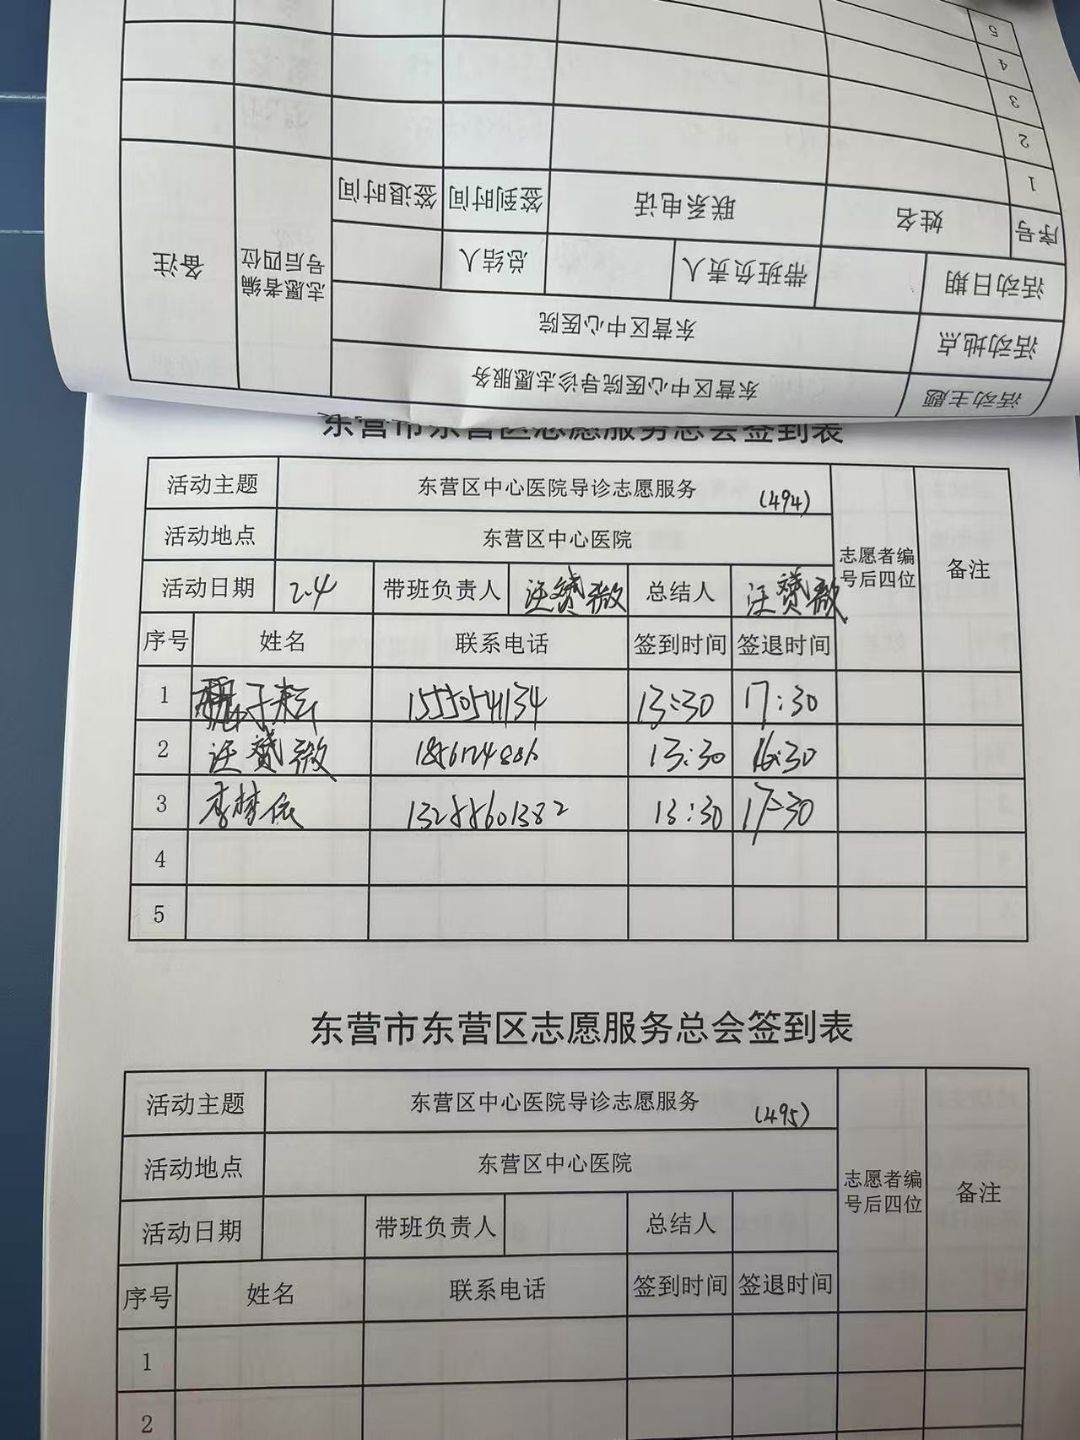 5
4
3
2
1
序号 姓名 联系电话 签到时间 签退时间
活动日期 带班负责人 总结人 志愿者编号后四位 备注
活动地点 东营区中心医院
活动主题 东营区中心医院导诊志愿服务
东营市东营区志愿服务总会签到表
活动主题 东营区中心医院导诊志愿服务 (494)
活动地点 东营区中心医院
志愿者编号后四位 备注
活动日期 2.4 带班负责人 汪赟薇 总结人 汪赟薇
序号 姓名 联系电话 签到时间 签退时间
1 13:30 17:30
2 汪赟薇 13:30 16:30
3 李梦依 13:30 17:30
4
5
东营市东营区志愿服务总会签到表
活动主题 东营区中心医院导诊志愿服务 (495)
活动地点 东营区中心医院
志愿者编号后四位 备注
活动日期 带班负责人 总结人
序号 姓名 联系电话 签到时间 签退时间
1
2